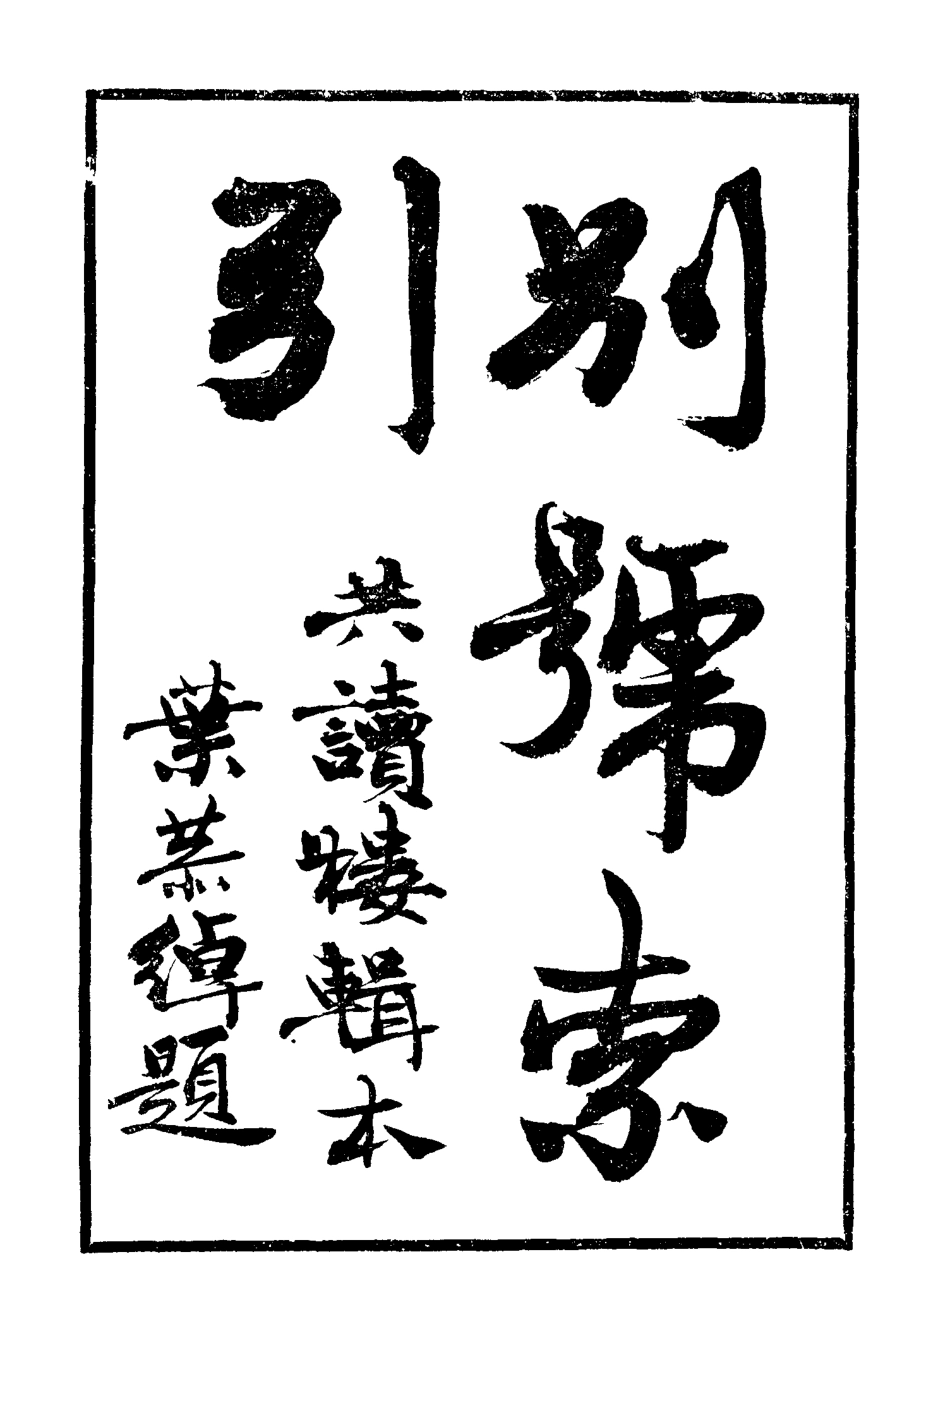 別號索
引
共讀樓輯本
葉恭綽題